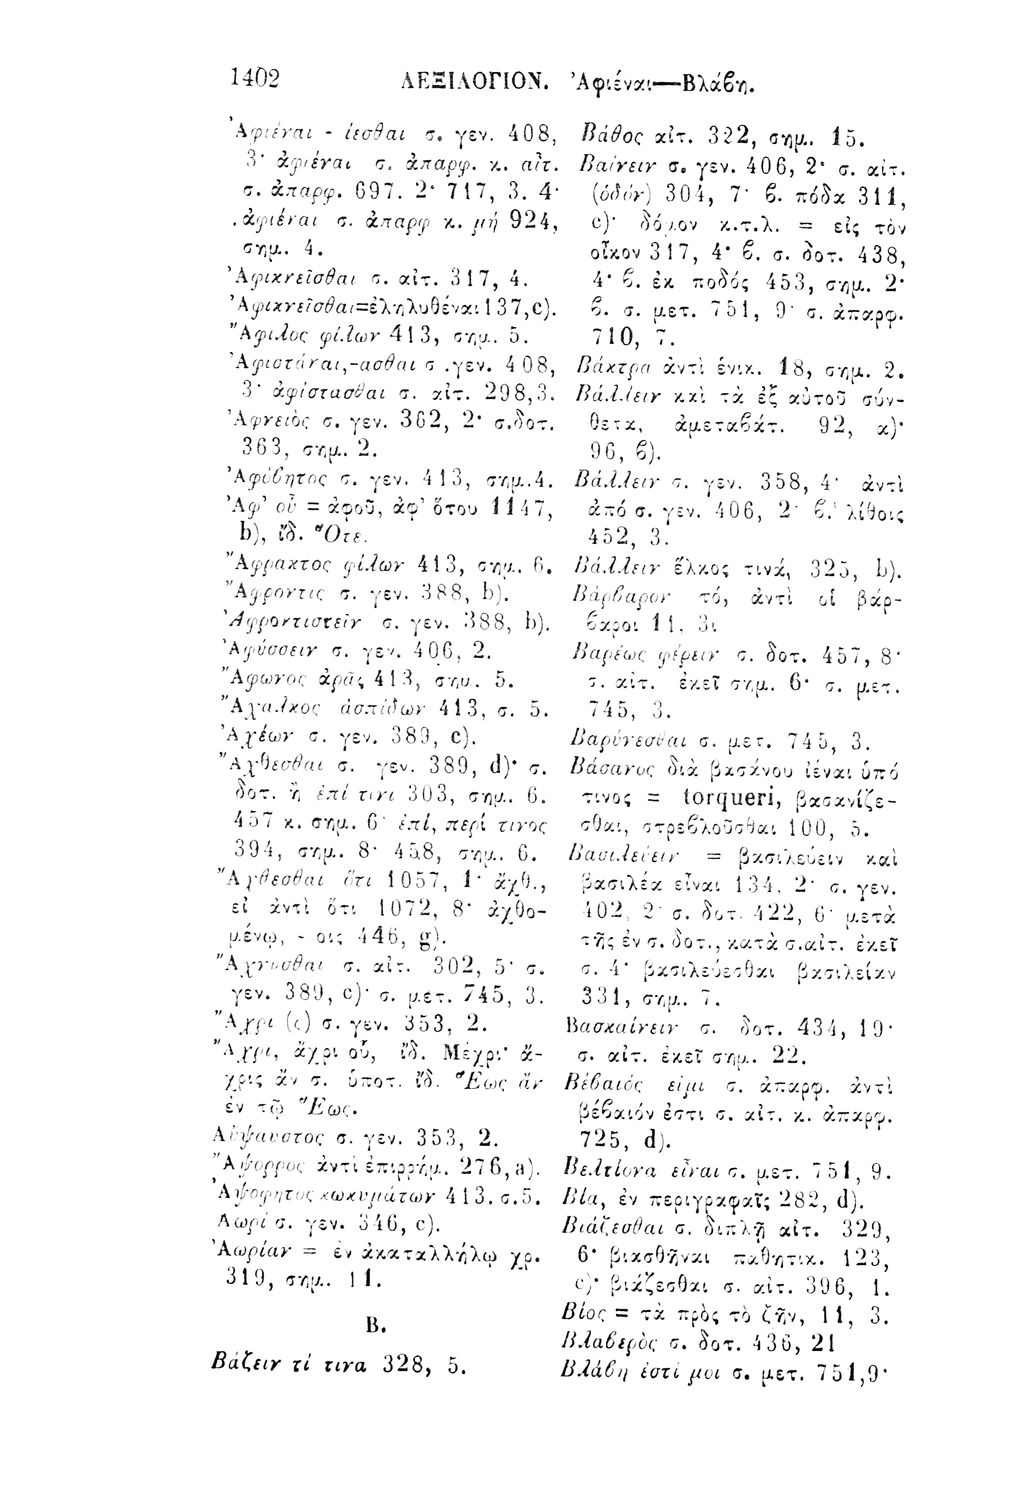 1402 ΛΕΞΙΛΟΓΙΟΝ. Ἀφιέναι—Βλάβη.
Ἀφιέναι - ίεσθαι σ. γεν. 408,
3· ἀφιέναι σ. ἀπαρφ. κ. αἰτ.
σ. ἀπαρφ. 697. 2· 717, 3. 4·
ἀφιέναι σ. ἀπαρφ κ. μή 924,
σημ. 4.
Ἀφικνεῖσθαι σ. αἰτ. 317, 4.
Ἀφικνεῖσθαι=ἐληλυθέναι 137,c).
Ἄφιλος φίλων 413, σημ. 5.
Ἀφιστάναι,-ασθαι σ .γεν. 408,
3· ἀφίστασθαι σ. αἰτ. 298,3.
Ἀφνειὸς σ. γεν. 362, 2· σ.δοτ.
363, σημ. 2.
Ἀφόβητος σ. γεν. 413, σημ.4.
Ἀφ' οὗ = ἀφοῦ, ἀφ' ὅτου 1147,
b), ἴδ. Ὅτε.
Ἄφρακτος φίλων 413, σημ. 6.
Ἄφροντις σ. γεν. 388, b).
Ἀφροντιστεῖν σ. γεν. 388, b).
Ἀφύσσειν σ. γεν. 406, 2.
Ἄφωνος ἀρᾶς 413, σημ. 5.
Ἄχαλκος ἀσπίδων 413, σ. 5.
Ἀχέων σ. γεν. 389, c).
Ἄχθεσθαι σ. γεν. 389, d)· σ.
δοτ. ἢ ἐπί τινι 303, σημ. 6.
457 κ. σημ. 6· ἐπί, περί τινος
394, σημ. 8· 458, σημ. 6.
Ἄχθεσθαι ὅτι 1057, 1· ἄχθ.,
εἰ ἀντὶ ὅτι 1072, 8· ἀχθο-
μένῳ, - οις 446, g).
Ἄχνυσθαι σ. αἰτ. 302, 5· σ.
γεν. 389, c)· σ. μετ. 745, 3.
Ἄχρι (ς) σ. γεν. 353, 2.
Ἄχρι, ἄχρι οὗ, ἴδ. Μέχρι· ἄ-
χρις ἂν σ. ὑποτ. ἴδ. Ἕως ἂν
ἐν τῷ Ἕως.
Αὔψαυστος σ. γεν. 353, 2.
Ἄψορρος ἀντὶ ἐπιρρήμ. 276,a).
Ἀψόφητος κωκυμάτων 413. σ.5.
Ἀωρί σ. γεν. 346, c).
Ἀωρίαν = ἐν ἀκαταλλήλῳ χρ.
319, σημ. 11.
Β.
Βάζειν τί τινα 328, 5.
Βάθος αἰτ. 322, σημ. 15.
Βαίνειν σ. γεν. 406, 2· σ. αἰτ.
(ὁδόν) 304, 7· β. πόδα 311,
c)· δόμον κ.τ.λ. = εἰς τὸν
οἶκον 317, 4· β. σ. δοτ. 438,
4· β. ἐκ ποδός 453, σημ. 2·
β. σ. μετ. 751, 9· σ. ἀπαρφ.
710, 7.
Βάκτρα ἀντὶ ἑνικ. 18, σημ. 2.
Βάλλειν καὶ τὰ ἐξ αὐτοῦ σύν-
θετα, ἀμεταβάτ. 92, α)·
96, β).
Βάλλειν σ. γεν. 358, 4· ἀντὶ
ἀπό σ. γεν. 406, 2· β. λίθοις
452, 3.
Βάλλειν ἕλκος τινά, 325, b).
Βάρβαρον τό, ἀντὶ οἱ βάρ-
βαροι 11, 3.
Βαρέως φέρειν σ. δοτ. 457, 8·
σ. αἰτ. ἐκεῖ σημ. 6· σ. μετ.
745, 3.
Βαρύνεσθαι σ. μετ. 745, 3.
Βάσανος διὰ βασάνου ἰέναι ὑπό
τινος = torqueri, βασανίζε-
σθαι, στρεβλοῦσθαι 100, 5.
Βασιλεύειν = βασιλεύειν καὶ
βασιλέα εἶναι 134. 2· σ. γεν.
402, 2· σ. δοτ. 422, 6· μετὰ
τῆς ἐν σ. δοτ., κατὰ σ.αἰτ. ἐκεῖ
σ. 4· βασιλεύεσθαι βασιλείαν
331, σημ. 7.
Βασκαίνειν σ. δοτ. 434, 19·
σ. αἰτ. ἐκεῖ σημ. 22.
Βέβαιός εἰμι σ. ἀπαρφ. ἀντὶ
βέβαιόν ἐστι σ. αἰτ. κ. ἀπαρφ.
725, d).
Βελτίονα εἶναι σ. μετ. 751, 9.
Βία, ἐν περιγραφαῖς 282, d).
Βιάζεσθαι σ. διπλῇ αἰτ. 329,
6· βιασθῆναι παθητικ. 123,
c)· βιάζεσθαι σ. αἰτ. 396, 1.
Βίος = τὰ πρὸς τὸ ζῆν, 11, 3.
Βλαβερὸς σ. δοτ. 436, 21
Βλάβη ἐστί μοι σ. μετ. 751,9·